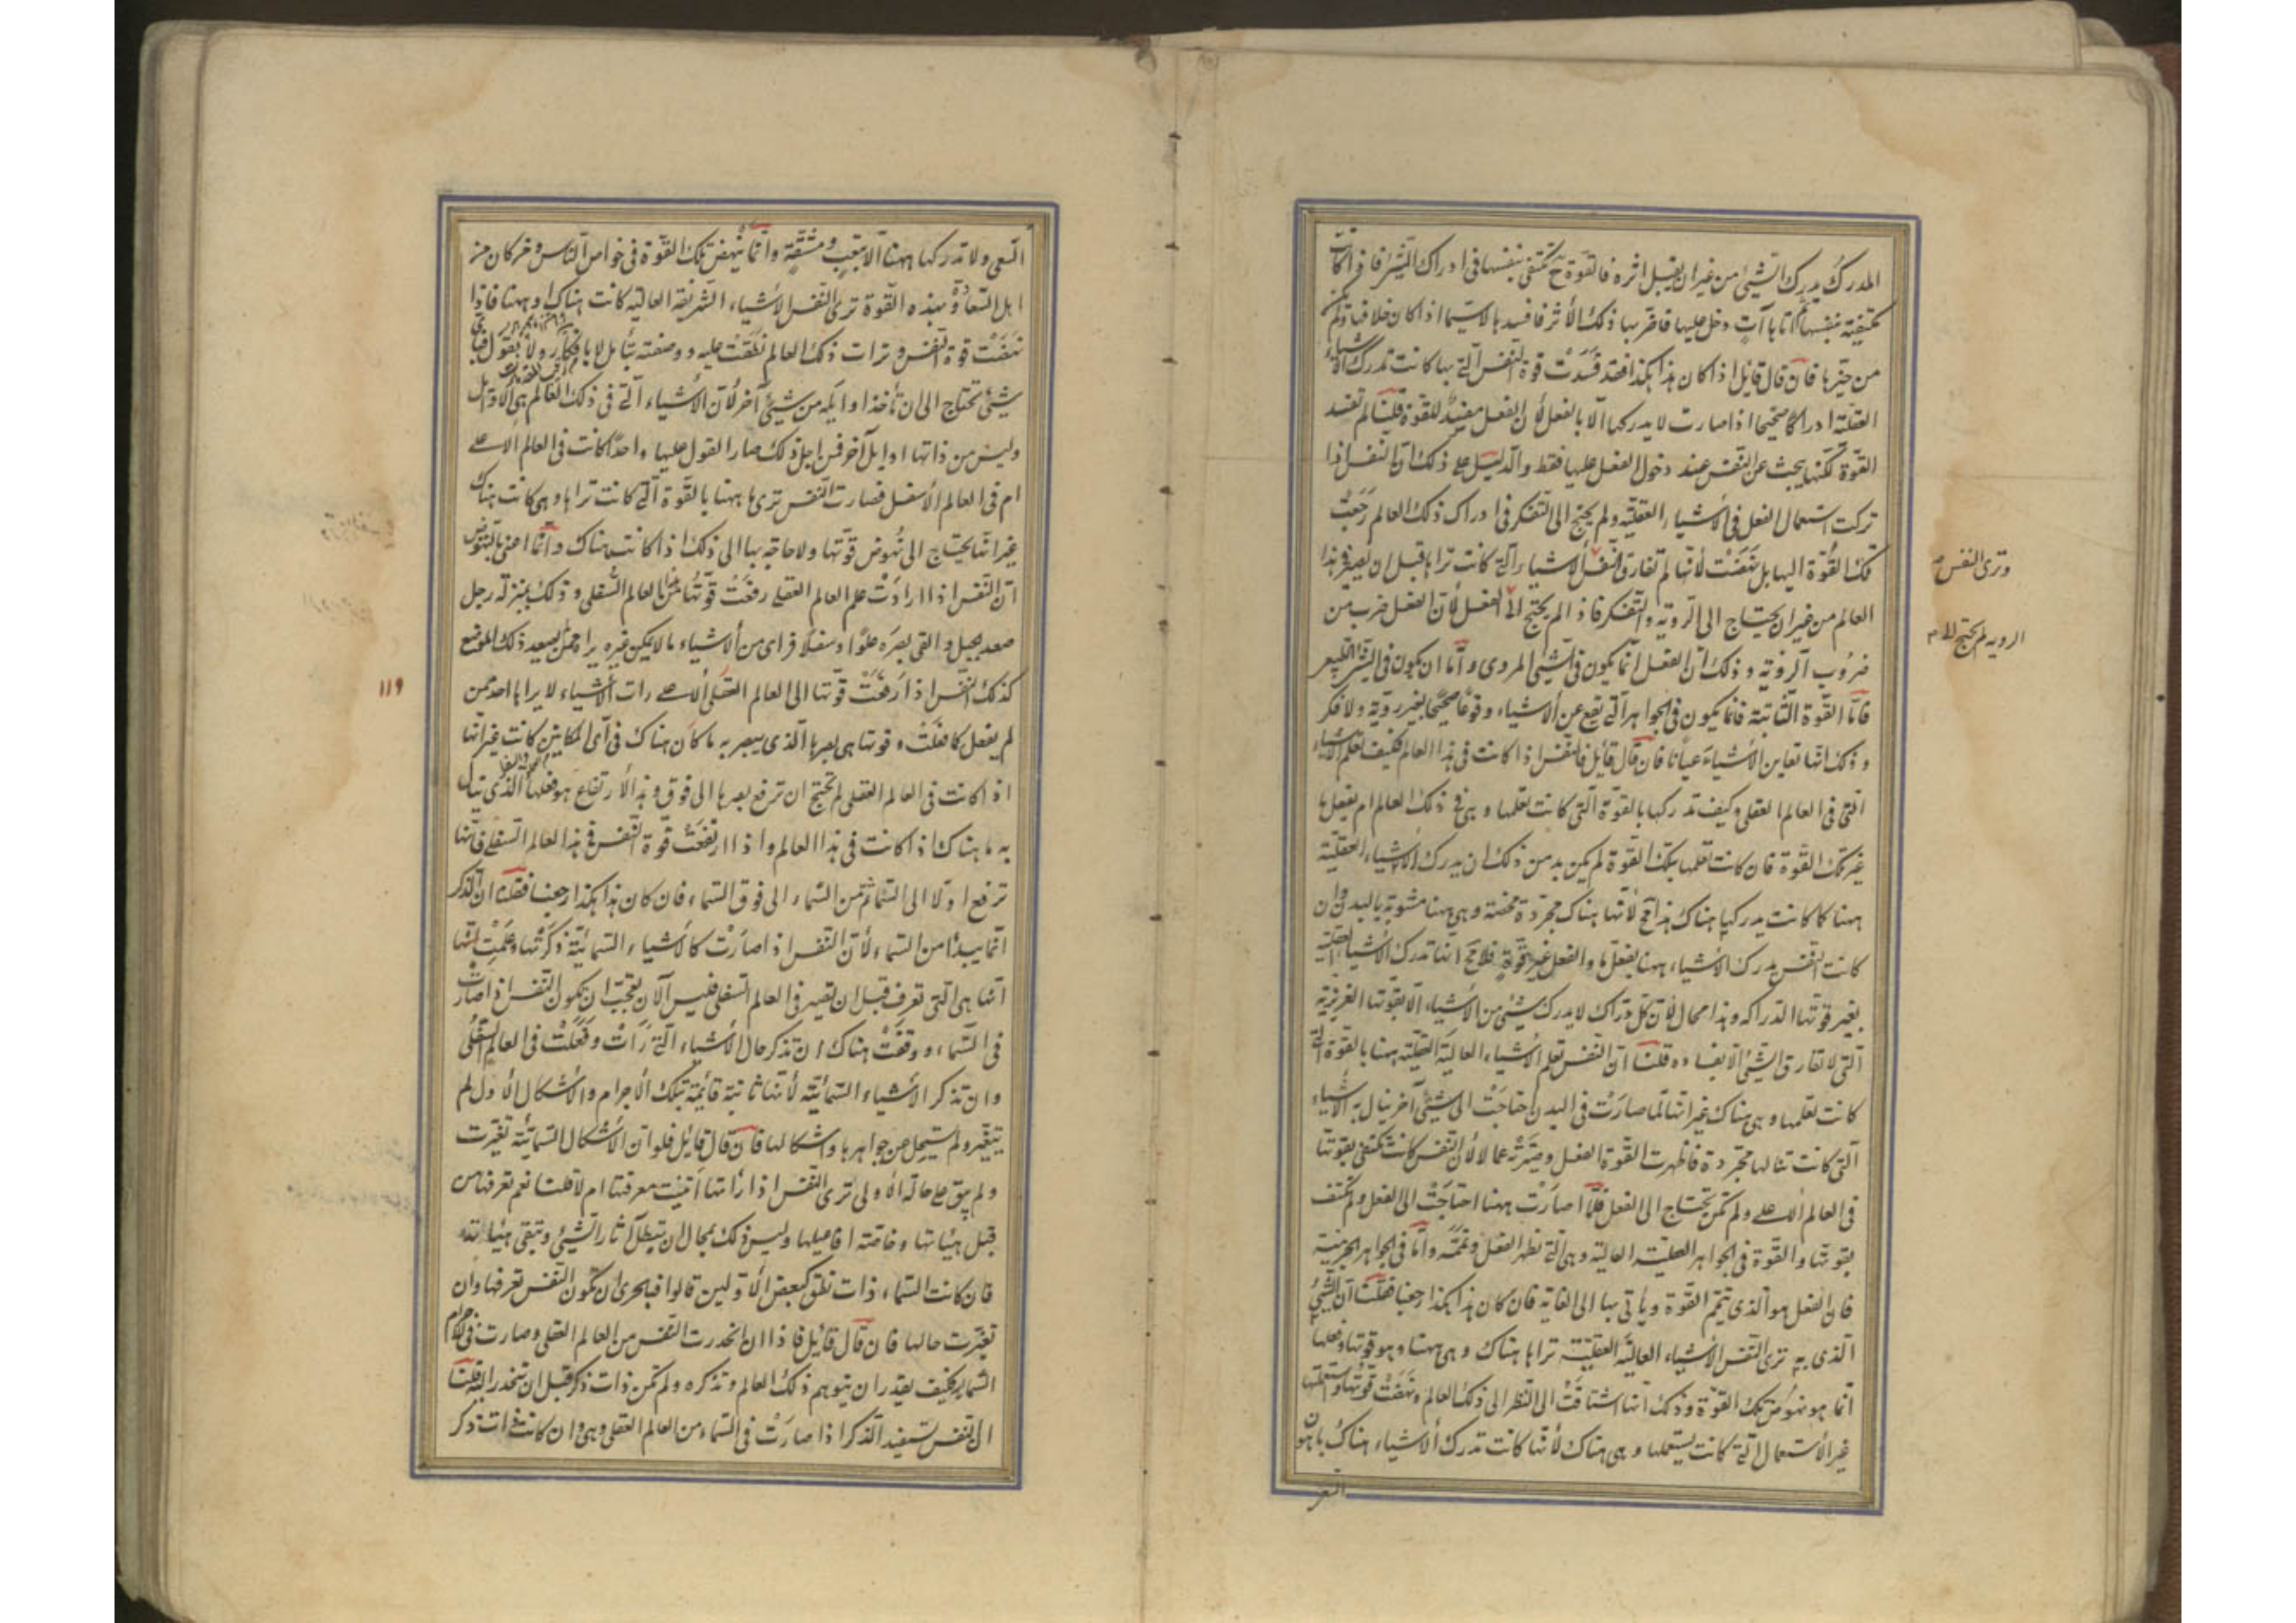 المدرك يدرك الشيء من غير ان يقبل اثره فالقوة ح تكتفى بنفسها فى ادراك الشىء فاذا كانت
مكتفية بنفسها ثم اتاها آت دخل عليها فاضر بها ذلك الأثر فافسدها لاسيما اذا كان خلافها ولم يكن
من حيزها فان قال قايل اذا كان هذا هكذا فقد فسدت قوة النفس التى بها كانت تدرك الاشياء
العقلية ادراكا صحيحا اذا صارت لا يدركها الا بالفعل لأن الفعل مفسد للقوة قلنا لم تفسد
القوة لكنها يبحث عن النفس عند دخول الفعل عليها فقط والدليل على ذلك ان النفس اذا
تركت استعمال الفعل فى الأشياء العقلية ولم يحتج الى التفكر فى ادراك ذلك العالم رجعت
تلك القوة اليها بل نهضت لأنها لم تفارق النفس الأشياء التى كانت تراها قبل ان يصير فى هذا
العالم من غير ان يحتاج الى الروية والتفكر فاذ الم يحتج الى الفعل لأن الفعل ضرب من
ضروب الروية وذلك ان الفعل انما يكون فى الشىء المروى واما ان يكون فى الشىء
فاما القوة الثابتة فانما يكون فى الجواهر التى تقع عن الأشياء وقوعا صحيحا بغير روية ولا فكر
وذلك انها تعاين الأشياء عيانا فان قال قايل فالنفس اذا كانت فى هذا العالم فكيف تعلم الاشياء
التى فى العالم العقلى وكيف تدركها بالقوة التى كانت تعلمها وهى فى ذلك العالم ام بفعلها
غير تلك القوة فان كانت تعلمها بتلك القوة لم يكن بد من ذلك ان يدرك الأشياء العقلية
ههنا كما كانت يدركها هناك هذا مح لأنها هناك مجردة محضة وهى ههنا مشوبة بالبدن وان
كانت النفس يدرك الأشياء ههنا بفعل ما والفعل غير قوة فلا مح انها تدرك الأشياء العقلية
بغير قوتها الدراكه وهذا محال لأن كل دراك لا يدرك شيئ من الأشياء الا بقوتها الغريزية
التى لا تفارق الشىء الا بفساده قلنا ان النفس تعلم الأشياء العالية العقلية ههنا بالقوة التى
كانت تعلمها وهى هناك غير انها لما صارت فى البدن احتاجت الى شىء آخر ينال به الأشياء
التى كانت تنالها مجردة فاظهرت القوة الفعل وصيرته عمالا لأن النفس كانت تكتفى بقوتها
فى العالم الاعلى ولم تكن يحتاج الى الفعل فلما صارت ههنا احتاجت الى الفعل ولم تكتف
بقوتها والقوة فى الجواهر العقلية العالية وهى التى تظهر الفعل وتممه واما فى الجواهر الجرمية
فان الفعل هو الذى يتمم القوة ويأتى بها الى الغاية فان كان هذا هكذا رجعنا فقلنا ان الشىء
الذى به ترى النفس الأشياء العالية العقلية تراها هناك وهى ههنا وهو قوتها وفعلها
انما هو نهوض تلك القوة وذلك انها اشتاقت الى النظر الى ذلك العالم ونهضت قوتها واستعملتها
غير الأستعمال التى كانت يستعملها وهى هناك لأنها كانت تدرك الأشياء هناك باهون
السعى
وترى النفس
الرويه لم يحتج الى
السعى ولا تدركها ههنا الا بتعب ومشقة وانما ينهض تلك القوة فى خواص الناس ومن كان من
اهل السعادة وبهذه القوة ترى النفس الأشياء الشريفة العالية كانت هناك او ههنا فاذا
نهضت قوة النفس ورات ذلك العالم نطقت عليه ووصفته لا بافكار ولا بقول
شىء تحتاج الى ان تأخذ اوايله من شىء آخر لأن الأشياء التى فى ذلك العالم هى الاوايل
وليس من ذاتها اوايل آخر فمن اجل ذلك صار القول عليها واحدا كانت فى العالم الاعلى
ام فى العالم الأسفل فصارت النفس ترى ما ههنا بالقوة التى كانت تراها وهى كانت هناك
غير انها يحتاج الى نهوض قوتها ولا حاجة بها الى ذلك اذا كانت هناك وانما اعنى بالنهوض
ان النفس اذا ارادت علم العالم العقلى رفعت قوتها من هذا العالم السفلى وذلك بمنزلة رجل
صعد جبل والقى بصره علوا وسفلا فراى من الأشياء ما لا يمكن غيره يراه ممن لم يصعد ذلك الموضع
كذلك النفس اذا رفعت قوتها الى العالم العقلى الأعلى رات الأشياء لا يراها احد ممن
لم يفعل كما فعلت وقوتها هى بصرها الذى يبصر به ما كان هناك فى اى المكانين كانت غير انها
اذا كانت فى العالم العقلى لم تحتج ان ترفع بصرها الى فوق وهذا الأرتفاع هو فعلها الذى ينال
به ما هناك اذا كانت فى هذا العالم واذا ارتفعت قوة النفس فى هذا العالم السفلى فانها
ترفع اولا الى السماء ثم من السماء الى فوق السماء فان كان هذا هكذا رجعنا فقلنا ان الذكر
انما يبدأ من السماء لأن النفس اذا صارت كالأشياء السمائية ذكرتها وعلمت
انها هى التى تعرف قبل ان تصير فى العالم السفلى فليس الآن بعجب ان يكون النفس اذا صارت
فى السماء ووقفت هناك ان تذكر حال الأشياء التى رأت وفعلت فى العالم السفلى
وان تذكر الأشياء السمائية لأنها ثابتة قائمة بتلك الأجرام والأشكال الأول لم
يتغير ولم تستحل عن جواهرها واشكالها فان قال قايل فلو ان الأشكال السمائية تغيرت
ولم يبق على حاله الاولى ترى النفس اذا رأتها اتثبت معرفتها ام لا قلنا نعم تعرفها من
قبل هيئاتها وخاصة افاعيلها وليس ذلك بمحال ان يبطل آثار الشىء وتبقى هيئاته
فان كانت السماء ذات نطق كبعض الأولين قالوا فبالحرى ان تكون النفس تعرفها وان
تغيرت حالها فان قال قايل فاذا ان انحدرت النفس من العالم العقلى وصارت فى الاجرام
السمائية فكيف يقدر ان يتوهم ذلك العالم وتذكره ولم تكن ذات ذكر قبل ان تنحدر اليه قلنا
ان النفس تستفيد الذكر اذا صارت فى السماء من العالم العقلى وهى وان كانت ذات ذكر
١١٩